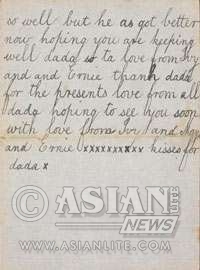 so well but he as got better
now hoping you are keeping
well dada so ta love from Ivy
and and Ernie thank dada
for the presents love from all
dada hoping to see you soon
with love from Ivy and
and Ernie xxxxxxxxxx kisses for
dada x
© ASIAN
LITE
NEWS
WWW.ASIANLITE.COM